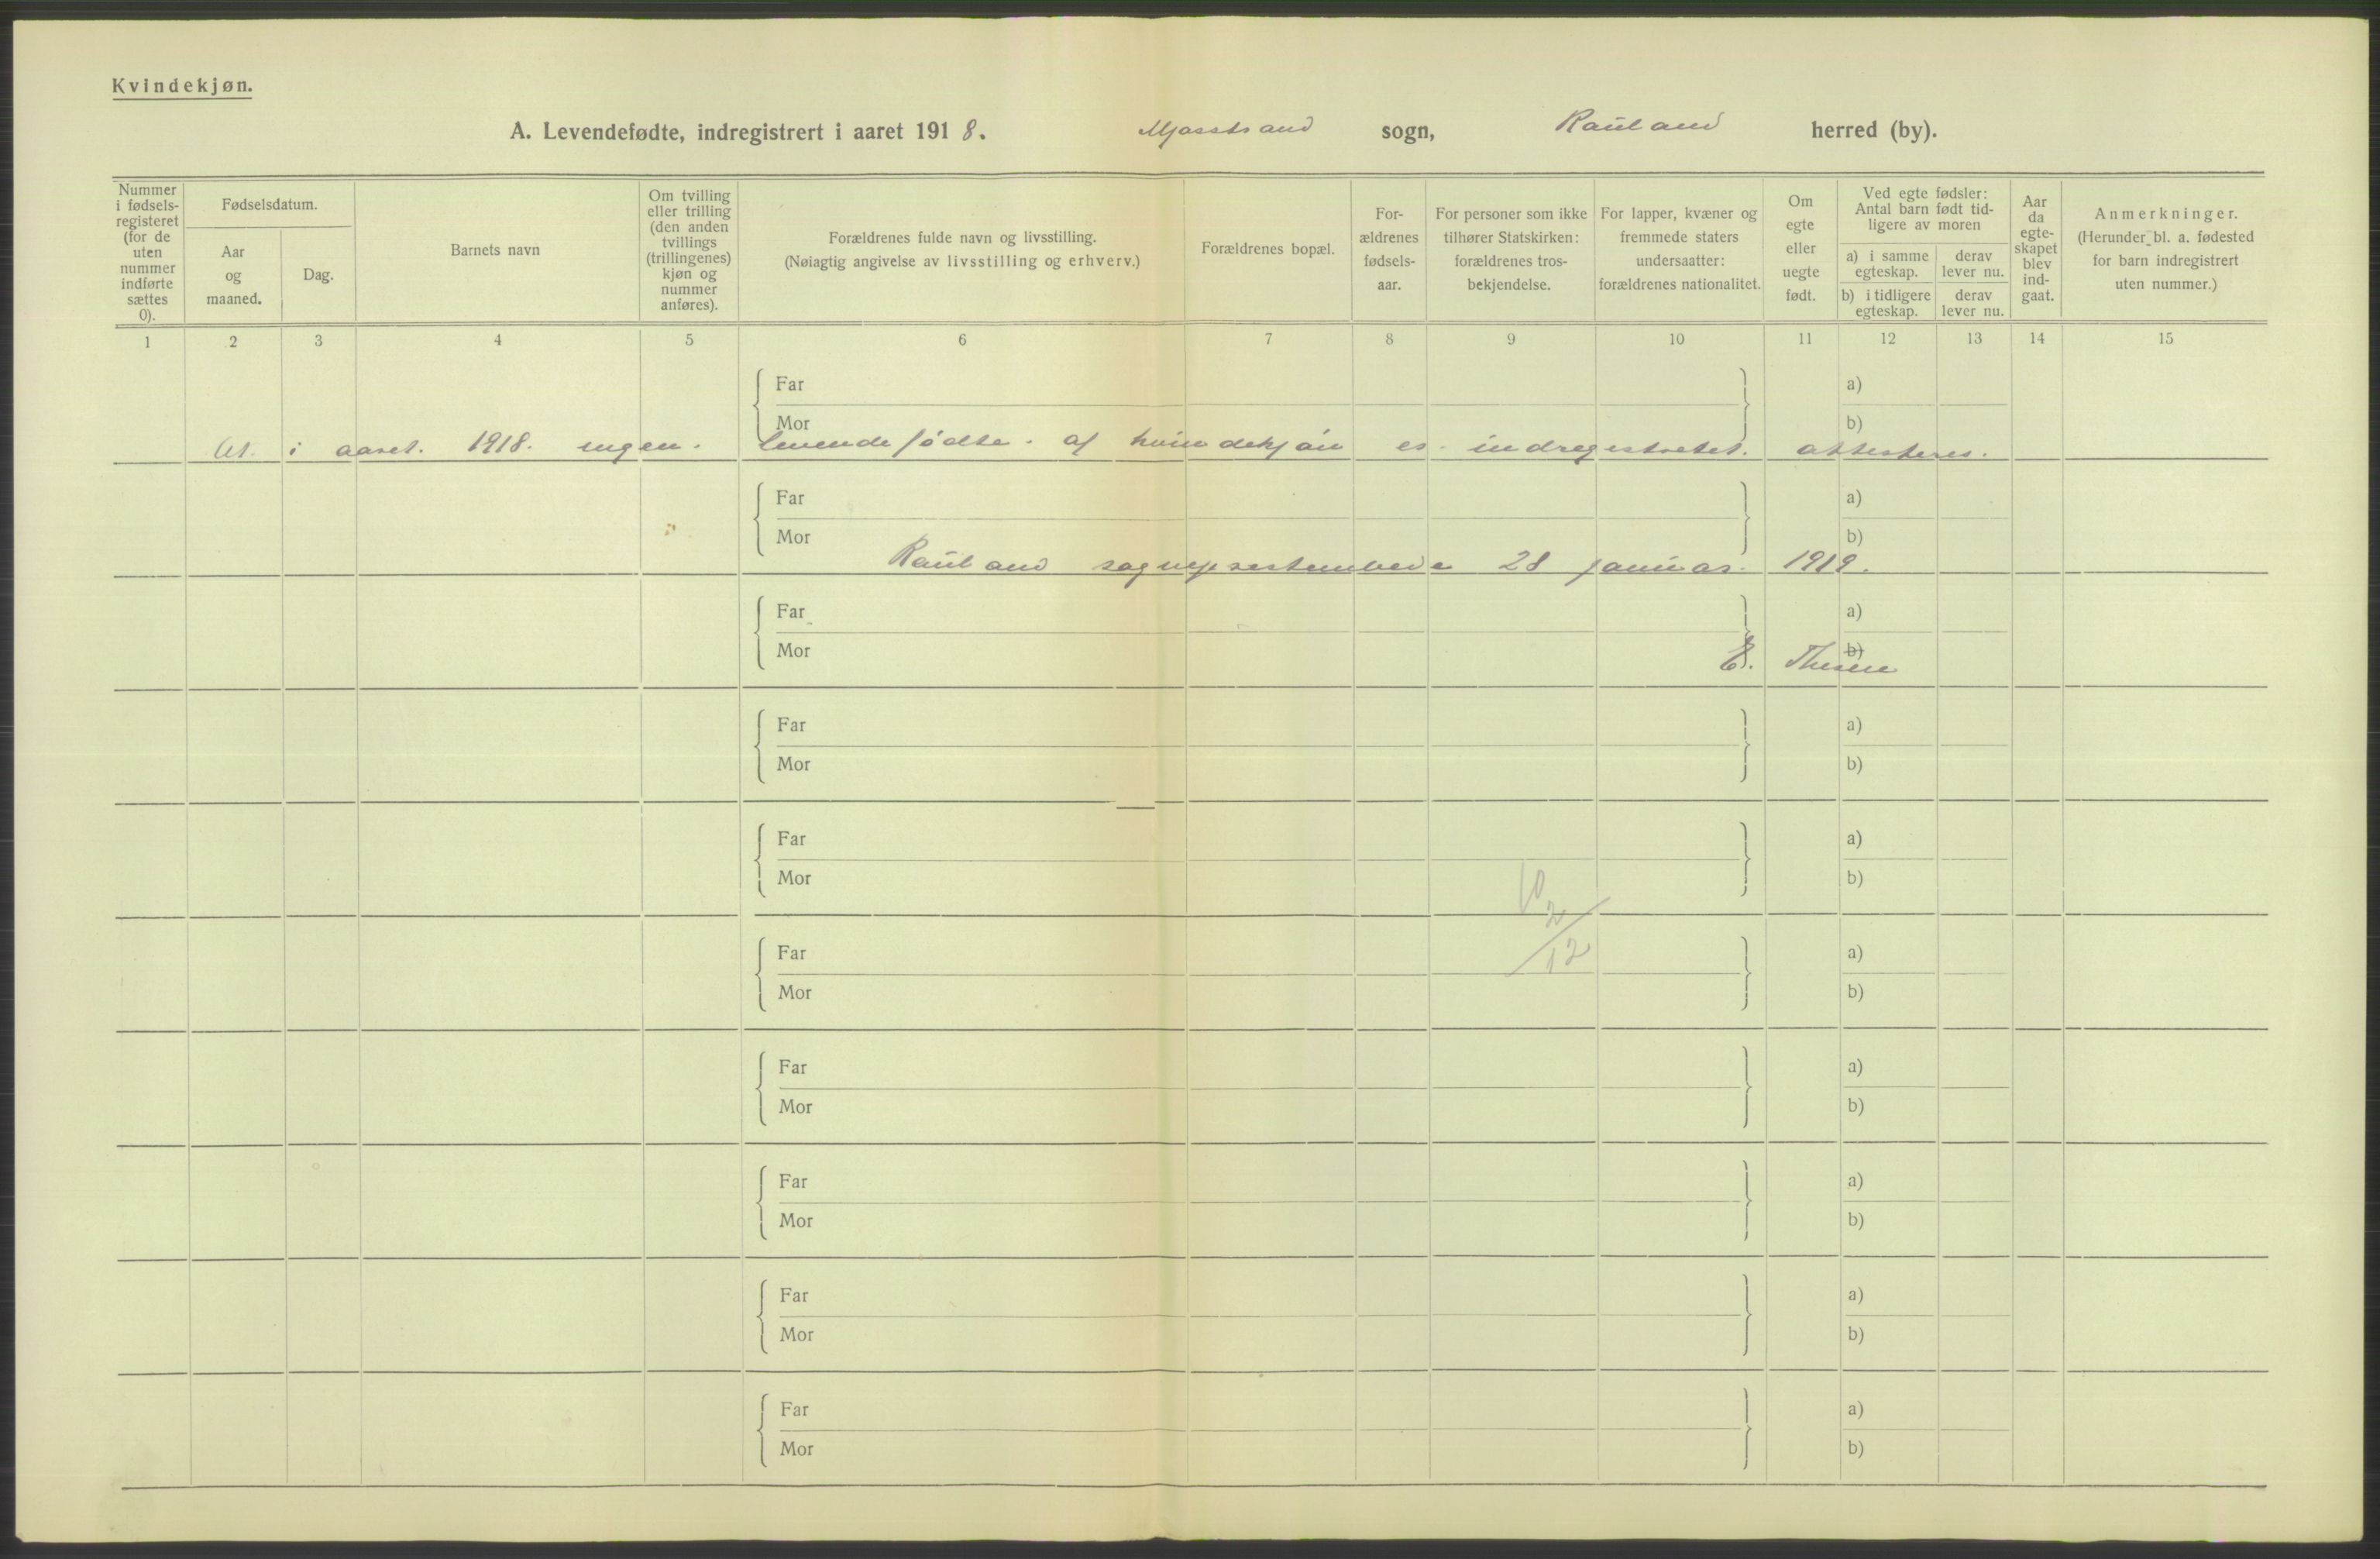 Kvindekjøn.
A. Levendefødte, indregistrert i aaret 1918. Mjosstrand sogn, Rauland herred (by).
Nummer i fødsels-registeret (for de uten nummer indførte sættes 0).
Fødselsdatum.
Aar og maaned.
Dag.
Barnets navn
Om tvilling eller trilling (den anden tvillings (trillingenes) kjøn og nummer anføres).
Forældrenes fulde navn og livsstilling.
(Nøiagtig angivelse av livsstilling og erhverv.)
Forældrenes bopæl.
For-ældrenes fødsels-aar.
For personer som ikke tilhører Statskirken: forældrenes tros-bekjendelse.
For lapper, kvæner og fremmede staters undersaatter: forældrenes nationalitet.
Om egte eller uegte født.
Ved egte fødsler: Antal barn født tid-ligere av moren
a) i samme egteskap.
derav lever nu.
b) i tidligere egteskap.
derav lever nu.
Aar da egte-skapet blev ind-gaat.
Anmerkninger.
(Herunder bl. a. fødested for barn indregistrert uten nummer.)
1 2 3 4 5 6 7 8 9 10 11 12 13 14 15
Far a)
Mor b)
At i aaret. 1918. ingen. levendefødte. af kvindekjøn er indregistreret. attesteres.
Far a)
Mor b)
Rauland sogneprestembede 28 januar. 1919.
Far a)
Mor b)
E. Thesen
Far a)
Mor b)
Far a)
Mor b)
10
2/12
Far a)
Mor b)
Far a)
Mor b)
Far a)
Mor b)
Far a)
Mor b)
Far a)
Mor b)